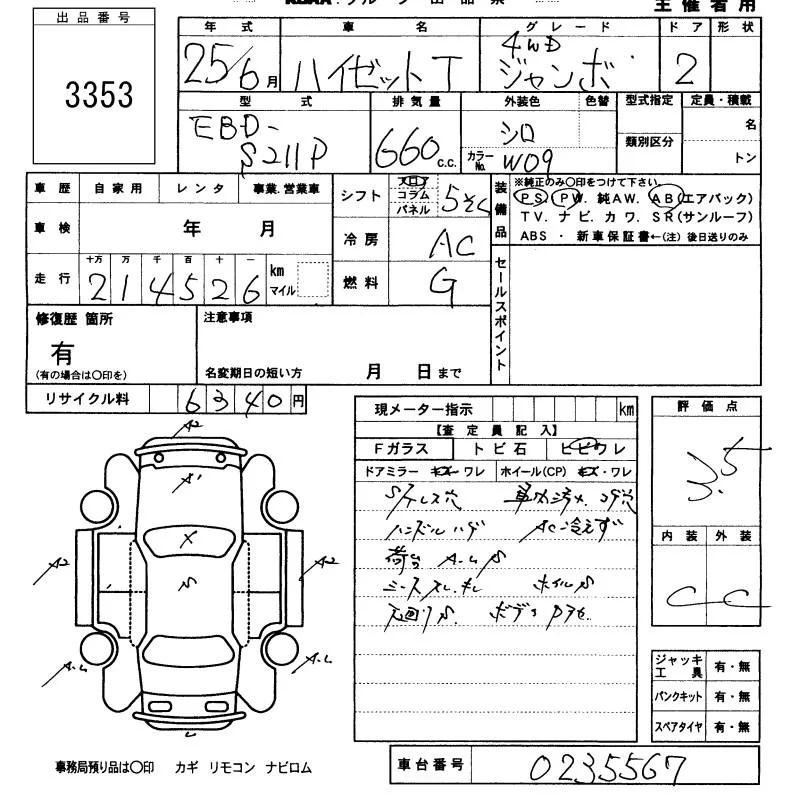 主催者用
出品番号
3353
年式 車名 グレード ドア 形状
25/6月 ハイゼットT 4WD ジャンボ 2
型式 排気量 外装色 色替 型式指定 定員・積載
EBD-S211P 660c.c. シロ 類別区分 名
カラーNo. W09 トン
車歴 自家用 レンタ 事業.営業車
シフト コラム パネル 5そく
装備品
※純正のみ○印をつけて下さい。
PS PW 純AW. AB(エアバック)
TV. ナビ. カワ. SR(サンルーフ)
ABS ・ 新車保証書←(注) 後日送りのみ
車検 年 月
冷房 AC
走行 十万 万 千 百 十 一
214526 km マイル
燃料 G
セールスポイント
修復歴 箇所
有
(有の場合は○印を)
注意事項
名変期日の短い方 月 日まで
リサイクル料 6340円
現メーター指示 km
評価点
3.5
【査定員記入】
Fガラス トビ石 ヒビワレ
ドアミラー キズーワレ ホイール(CP) キズ・ワレ
S/テレス穴 コゲ穴
ハンドルハゲ AC冷えず
荷台 A.L S
ホイルS
下回りS ボデー
内装 外装
C C
A2
A1
X
S
A2 A2
A.L A.L
L
ジャッキ工具 有・無
パンクキット 有・無
スペアタイヤ 有・無
事務局預り品は○印 カギ リモコン ナビロム
車台番号 0235567